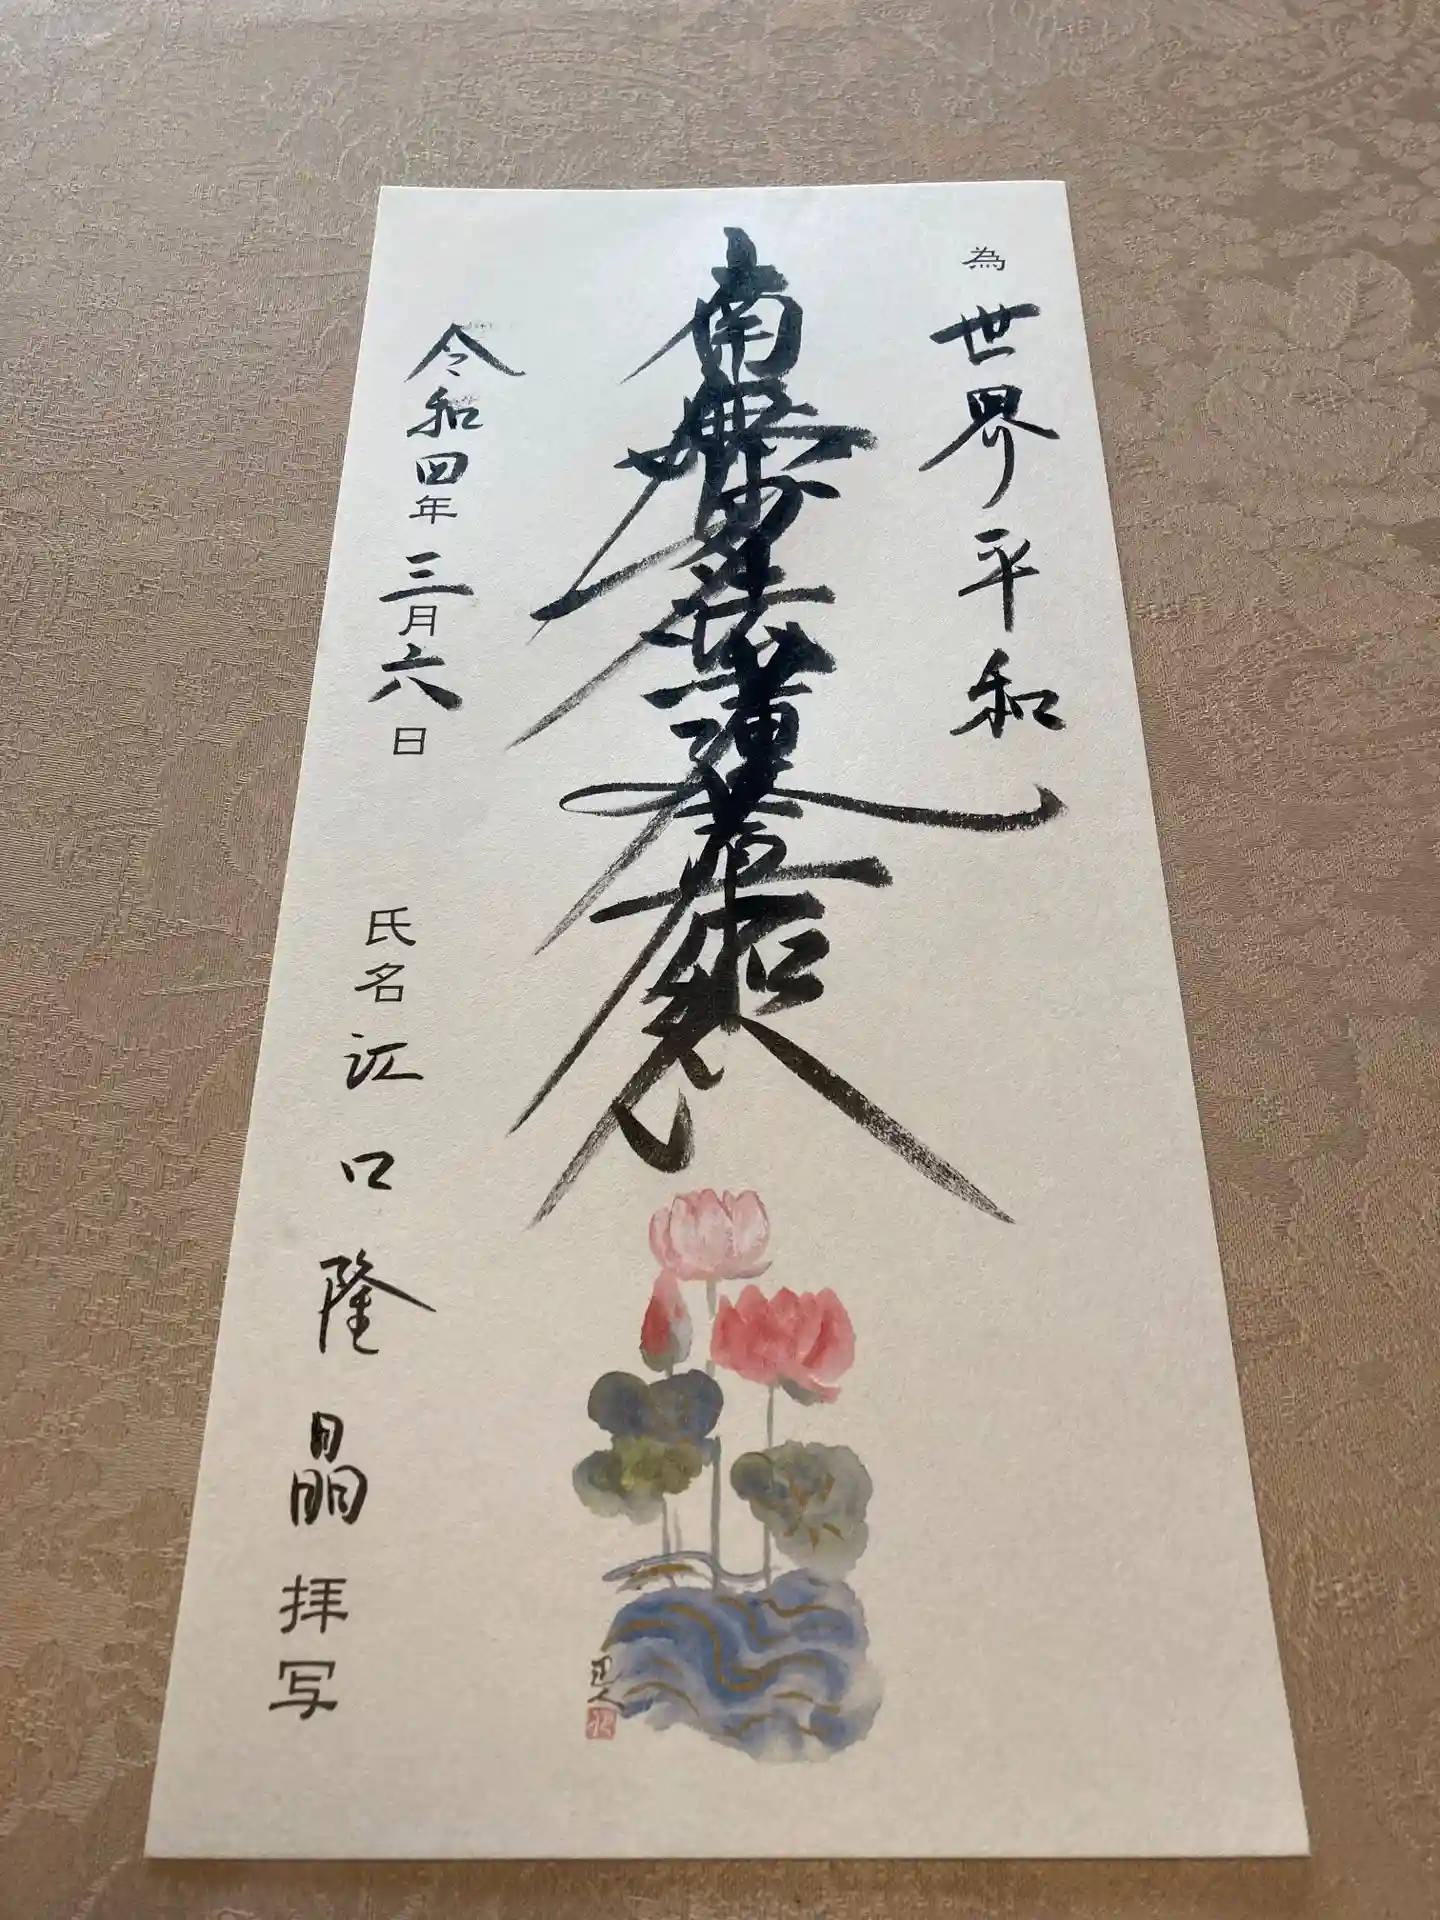 為 世界平和
南無妙法蓮華経
令和四年三月六日
氏名 江口隆晶 拝写